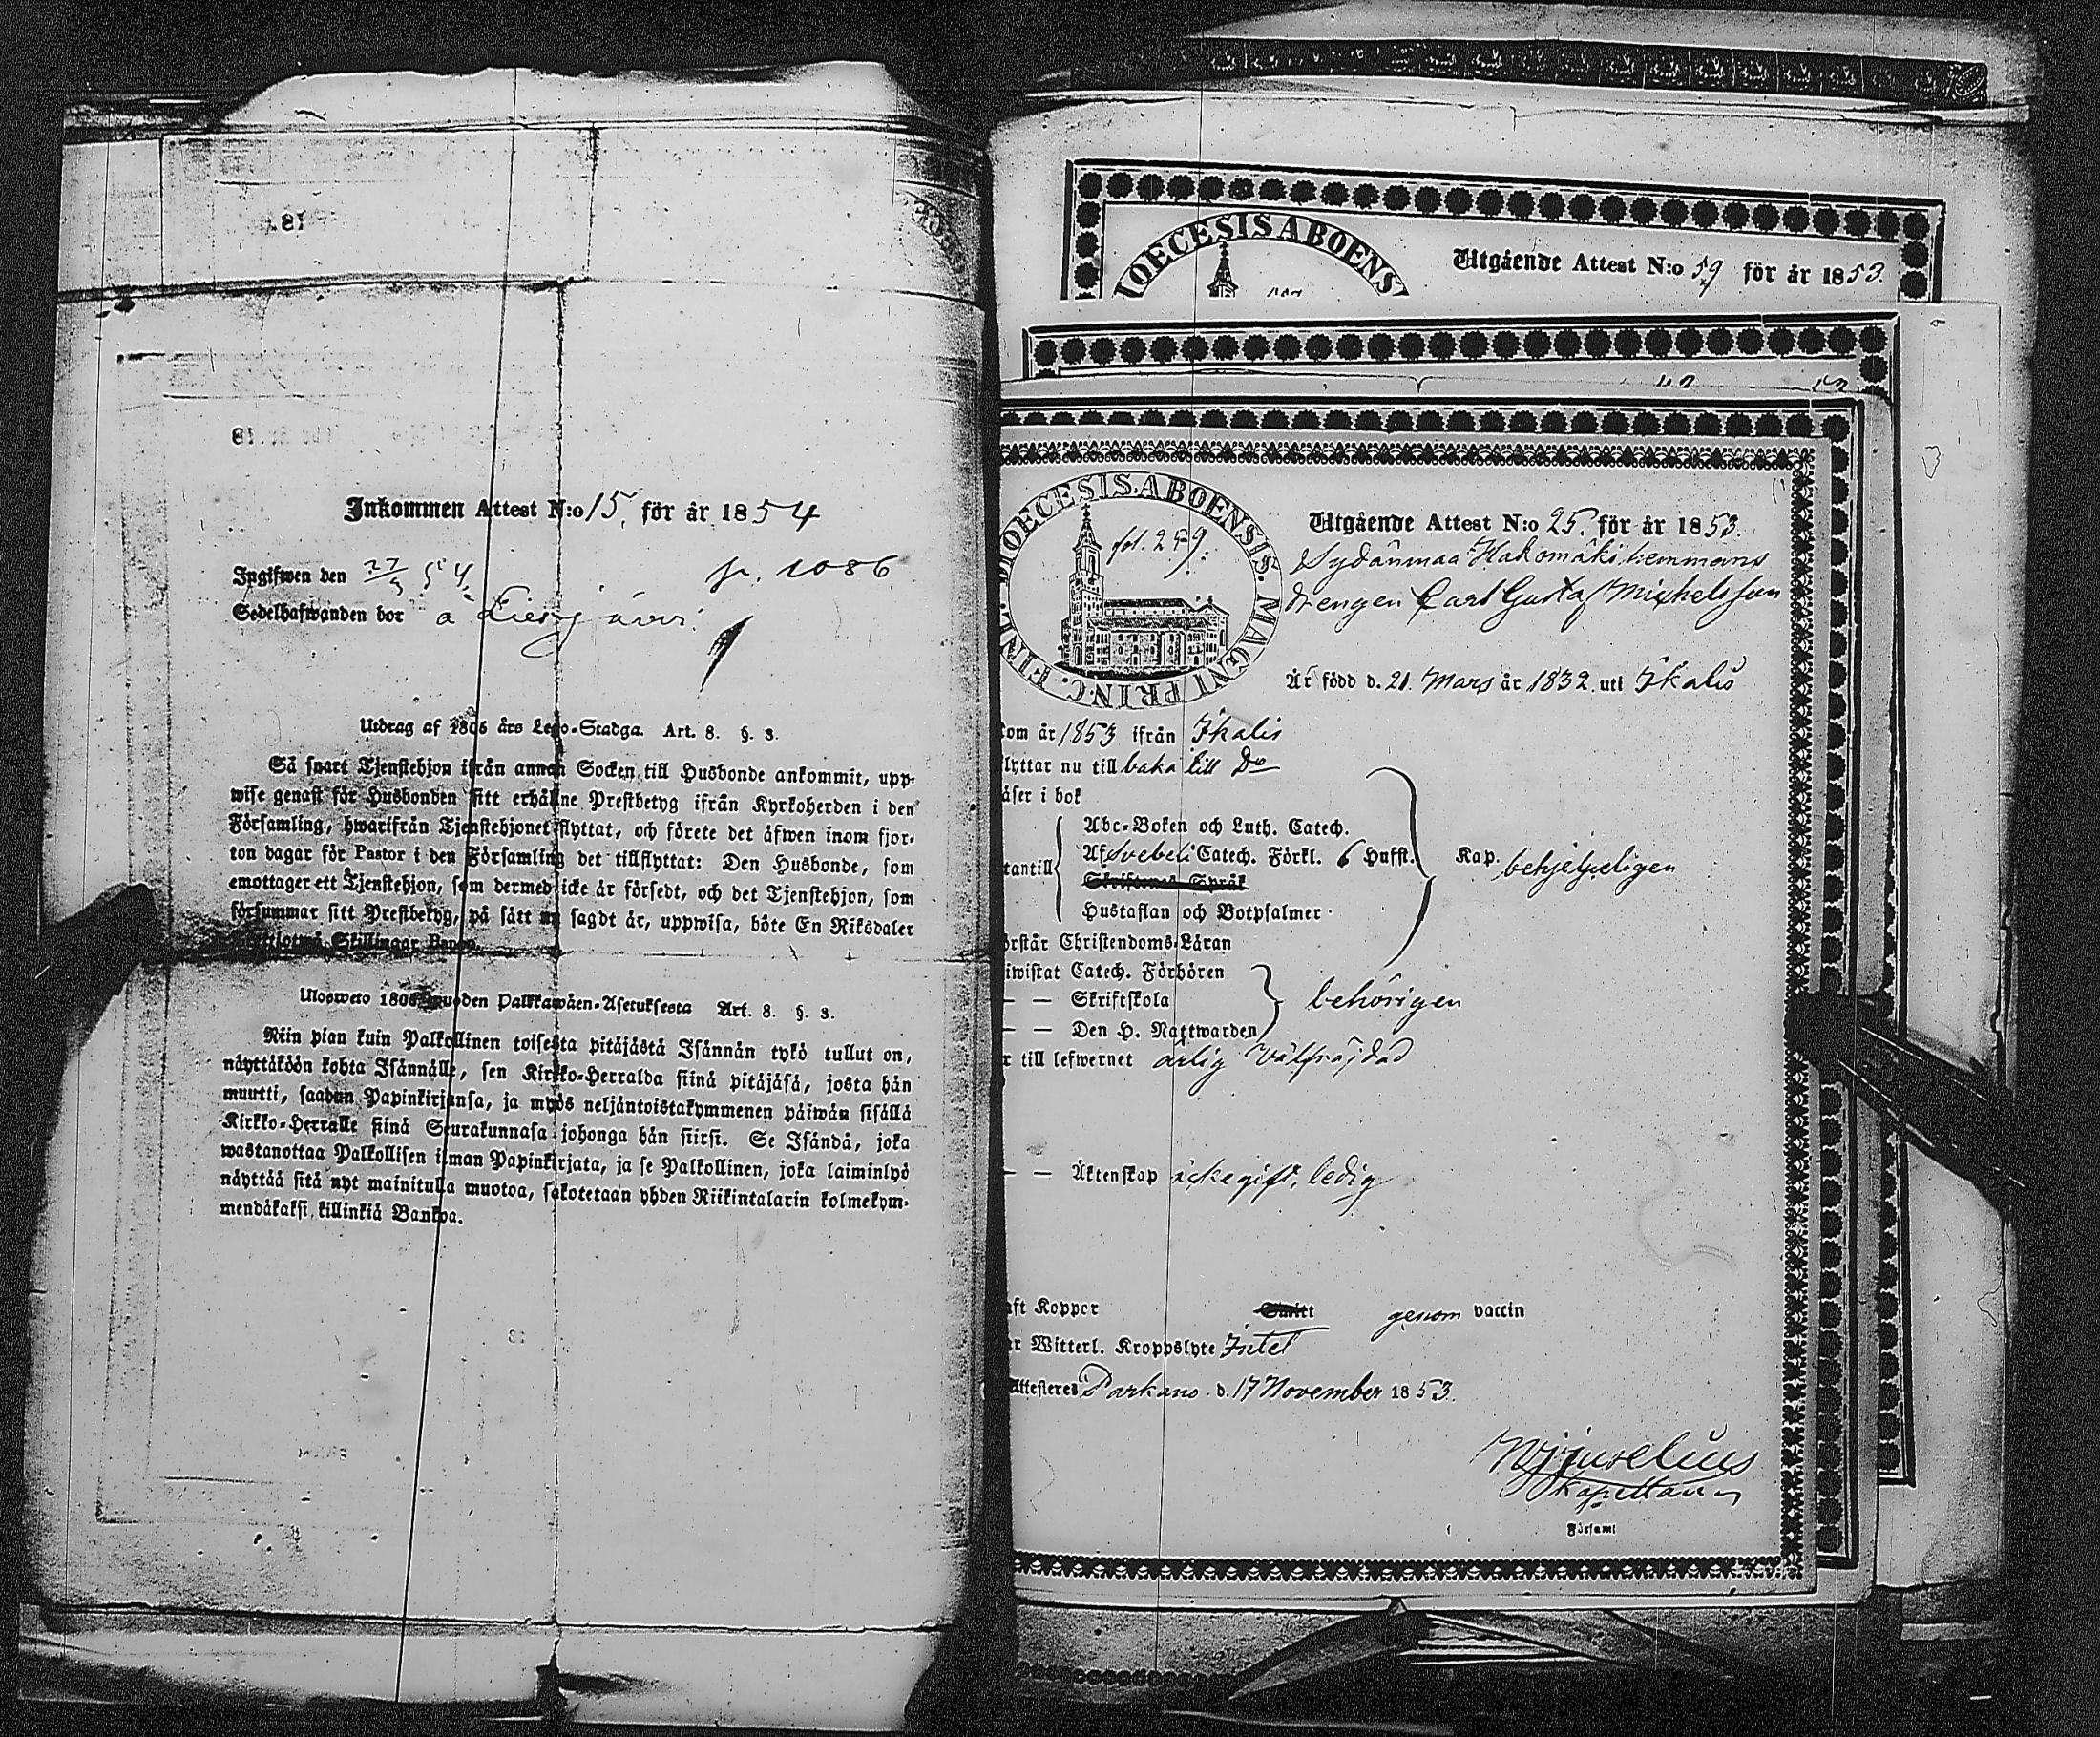 Inkommen Attest N:o 15. för år 1854
Ingifwen den 27/3 54. fr. 1086
Sedelhafwanden bor å
Utdrag af 1805 års Lego-Stadga. Art. 8. §. 3.
Så snart Tjenstehjon ifrån annan Socken till Husbonde ankommit, upp-
wise genast för Husbonden sitt erhållne Prestbetyg ifrån Kyrkoherden i den
Församling, hwarifrån Tjenstehjonet flyttat, och förete det äfwen inom fjor-
ton dagar för Pastor i den Församling det tillflyttat: Den Husbonde, som
emottager ett Tjenstehjon, som dermed icke är försedt, och det Tjenstehjon, som
försummar sitt Prestbetyg, på sätt nu sagdt är, uppwisa, böte En Riksdaler
Skillingar Banco.
Ulosweto 1805 wuoden Palkkawäen-Asetuksesta Art. 8. §. 3.
Niin pian kuin Palkollinen toisesta pitäjästä Isännän tykö tullut on,
näyttäköön kohta Isännälle, sen Kirkko-Herralda siinä pitäjäsä, josta hän
muutti, saadun Papinkirjansa, ja myös neljäntoistakymmenen päiwän sisällä
Kirkko-Herralle siinä Seurakunnasa johonga hän siirsi. Se Isändä, joka
wastanottaa Palkollisen ilman Papinkirjata, ja se Palkollinen, joka laiminlyö
näyttää sitä nyt mainitulla muotoa, sakotetaan yhden Riikintalarin kolmekym-
mendäkaksi killinkiä Bankoa.
IOECESIS ABOENS
Utgående Attest N:o 59 för år 1853.
DIOECESIS. ABOENSIS. MAGNI PRINC. FINL.
fol. 259.
Utgående Attest N:o 25. för år 1853.
Sydänmaa Hakomäki hemmans
drengen Carl Gustaf Michelsson
Är född d. 21. Mars år 1832. uti Ikalis
kom år 1853 ifrån Ikalis
flyttar nu till baka till Do
äser i bok
Abc-Boken och Luth. Catech.
tantill Af Svebeli Catech. Förkl. 6 Hufst. Kap. behjelpeligen
Skriftenes Språk
Hustaflan och Botpsalmer
örstår Christendoms-Läran
iwistat Catech. Förhören
— — Skriftskola behörigen
— — Den H. Nattwarden
r till lefwernet ärlig välfräjdad
— — Äktenskap icke gift, ledig
aft Koppor genom vaccin
ar Witterl. Kroppslyte Intet
Attesteres Parkano d. 17 November 1853.
Kapellan
Församl